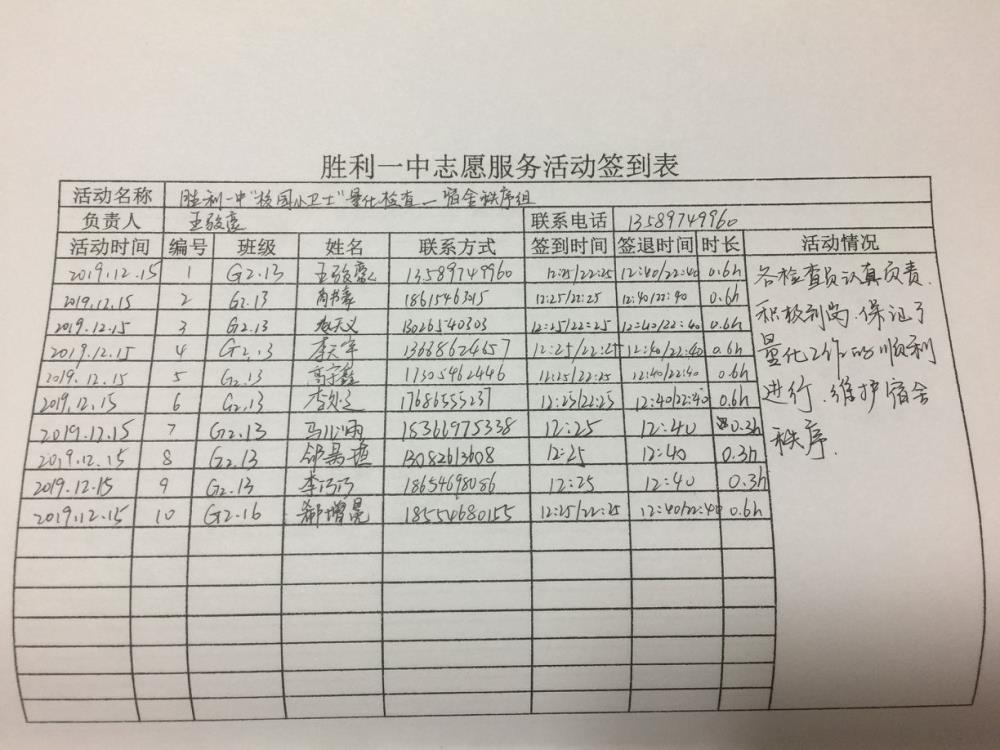 胜利一中志愿服务活动签到表
活动名称 胜利一中“校园小卫士”量化检查—宿舍秩序组
负责人 王骏 联系电话 13589749960
活动时间 编号 班级 姓名 联系方式 签到时间 签退时间 时长 活动情况
2019.12.15 1 G2.13 王骏 13589749960 12:25/22:25 12:40/22:40 0.6h 各检查员认真负责.
2019.12.15 2 G2.13 1861546315 12:25/22:25 12:40/22:40 0.6h
2019.12.15 3 G2.13 天义 13026540303 12:25/22:25 12:40/22:40 0.6h 积极到岗.保证了
2019.12.15 4 G2.13 李天宇 13668624657 12:25/22:25 12:40/22:40 0.6h 量化工作的顺利
2019.12.15 5 G2.13 高宇鑫 17305462446 12:25/22:25 12:40/22:40 0.6h
2019.12.15 6 G2.13 17686555237 12:25/22:25 12:40/22:40 0.6h 进行.维护宿舍
2019.12.15 7 G2.13 马心雨 18366975338 12:25 12:40 0.3h 秩序.
2019.12.15 8 G2.13 13082613608 12:25 12:40 0.3h
2019.12.15 9 G2.13 李巧巧 18654698086 12:25 12:40 0.3h
2019.12.15 10 G2.16 增昆 18554680155 12:25/22:25 12:40/22:40 0.6h